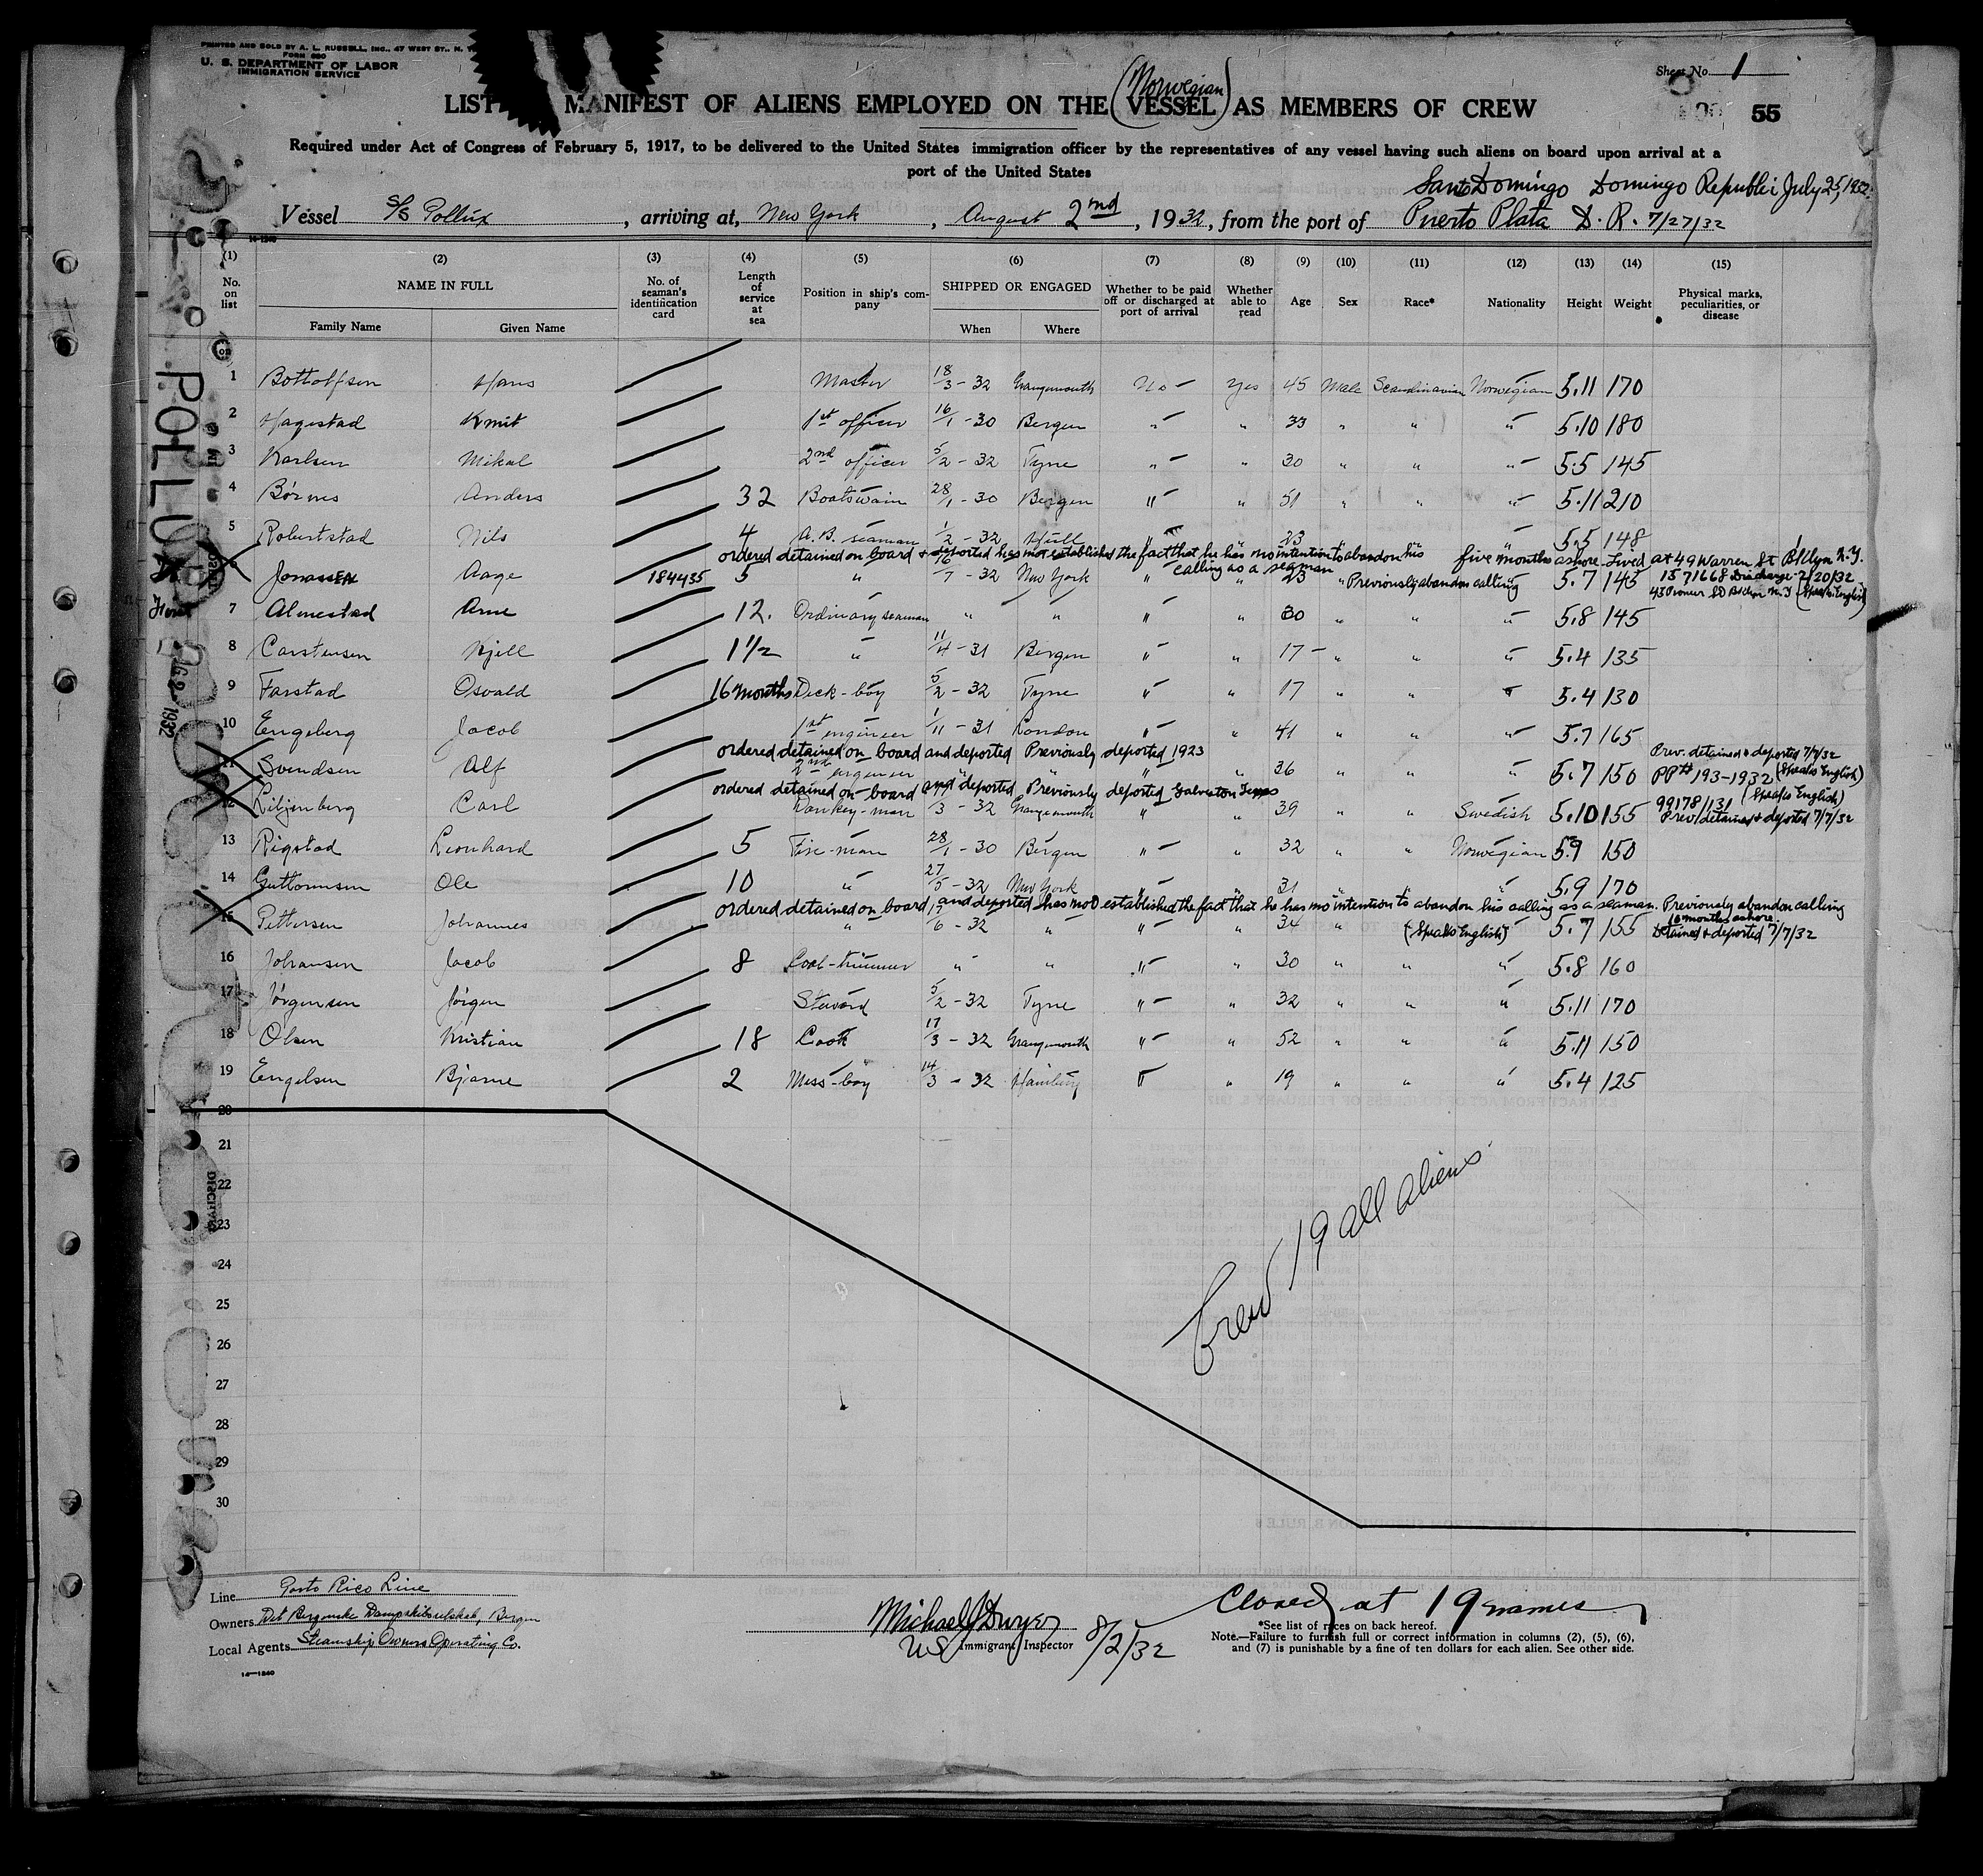 PRINTED AND SOLD BY A. L. RUSSELL, INC., 47 WEST ST., N. Y.
U. S. DEPARTMENT OF LABOR
IMMIGRATION SERVICE
Sheet No. 1
55
(Norwegian)
LIST MANIFEST OF ALIENS EMPLOYED ON THE VESSEL AS MEMBERS OF CREW
Required under Act of Congress of February 5, 1917, to be delivered to the United States immigration officer by the representatives of any vessel having such aliens on board upon arrival at a
port of the United States
Santo Domingo Domingo Republic July 25, 1932
Vessel S/S Pollux, arriving at, New York, August 2nd, 1932, from the port of Puerto Plata D. R. 7/27/32
(1) (2) (3) (4) (5) (6) (7) (8) (9) (10) (11) (12) (13) (14) (15)
No. on list NAME IN FULL Family Name Given Name No. of seaman's identification card Length of service at sea Position in ship's company SHIPPED OR ENGAGED When Where Whether to be paid off or discharged at port of arrival Whether able to read Age Sex Race* Nationality Height Weight Physical marks, peculiarities, or disease
POLLUX
1 Bottolfsen Hans Master 18/3 - 32 Grangemouth No - Yes 45 Male Scandinavian Norwegian 5.11 170
2 Hagestad Knut 1st officer 16/1 - 30 Bergen " - " 33 " " " 5.10 180
3 Karlsen Mikal 2nd officer 5/2 - 32 Tyne " - " 30 " " " 5.5 145
4 Börnes Anders 32 Boatswain 28/1 - 30 Bergen " - " 51 " " " 5.11 210
5 Robertstad Nils 4 A.B. seaman 1/2 - 32 Hull " " 23 " " " 5.5 148
ordered detained on board & deported has not established the fact that he has no intention to abandon his calling as a seaman five months ashore. Lived at 49 Warren St Bklyn N.Y.
6 Jonassen Aage 184435 5 " 16/7 - 32 New York " " 23 " Previously abandon calling " 5.7 145 1571668 Discharge 2/20/32 (Speaks English)
7 Almestad Arne 12. Ordinary seaman " " " " 30 " " " 5.8 145
8 Carstensen Kjell 1 1/2 " 11/4 - 31 Bergen " " 17 - " " " 5.4 135
9 Farstad Osvald 16 months Deck-boy 5/2 - 32 Tyne " " 17 " " " 5.4 130
10 Engeberg Jacob 1st engineer 1/11 - 31 London " " 41 " " " 5.7 165
ordered detained on board and deported Previously deported 1923 Prev. detained & deported 7/7/32
11 Svendsen Alf 2nd engineer " " " " 36 " " " 5.7 150 PP# 193-1932 (Speaks English)
ordered detained on board and deported Previously deported Galveston Texas (Speaks English)
12 Liljenberg Carl Donkey-man /3 - 32 Grangemouth " " 39 " " Swedish 5.10 155 99178/131 Prev. detained & deported 7/7/32
13 Rigstad Leonhard 5 Fire-man 28/1 - 30 Bergen " - " 32 " " Norwegian 5.9 150
14 Guttormsen Ole 10 " 27/5 - 32 New York " " 31 " " " 5.9 170
ordered detained on board and deported has not established the fact that he has no intention to abandon his calling as a seaman. Previously abandon calling
15 Pettersen Johannes " /6 - 32 " " " 34 " (Speaks English) " 5.7 155 10 months ashore. Detained & deported 7/7/32
16 Johansen Jacob 8 Coal-trimmer " " " " 30 " " " 5.8 160
17 Jörgensen Jörgen Steward 5/2 - 32 Tyne " - " 32 " " " 5.11 170
18 Olsen Kristian 18 Cook 17/3 - 32 Grangemouth " - " 52 " " " 5.11 150
19 Engelsen Bjarne 2 Mess-boy 14/3 - 32 Hamburg " " 19 " " " 5.4 125
20
21
22
23
24
25
26
27
28
29
30
Crew 19 all aliens
Line Porto Rico Line
Owners Det Bergenske Dampskibsselskab, Bergen
Local Agents Steamship Owners Operating Co.
Michael J Dwyer
US Immigrant Inspector 8/2/32
Closed at 19 names
*See list of races on back hereof.
Note.—Failure to furnish full or correct information in columns (2), (5), (6),
and (7) is punishable by a fine of ten dollars for each alien. See other side.
14—1240